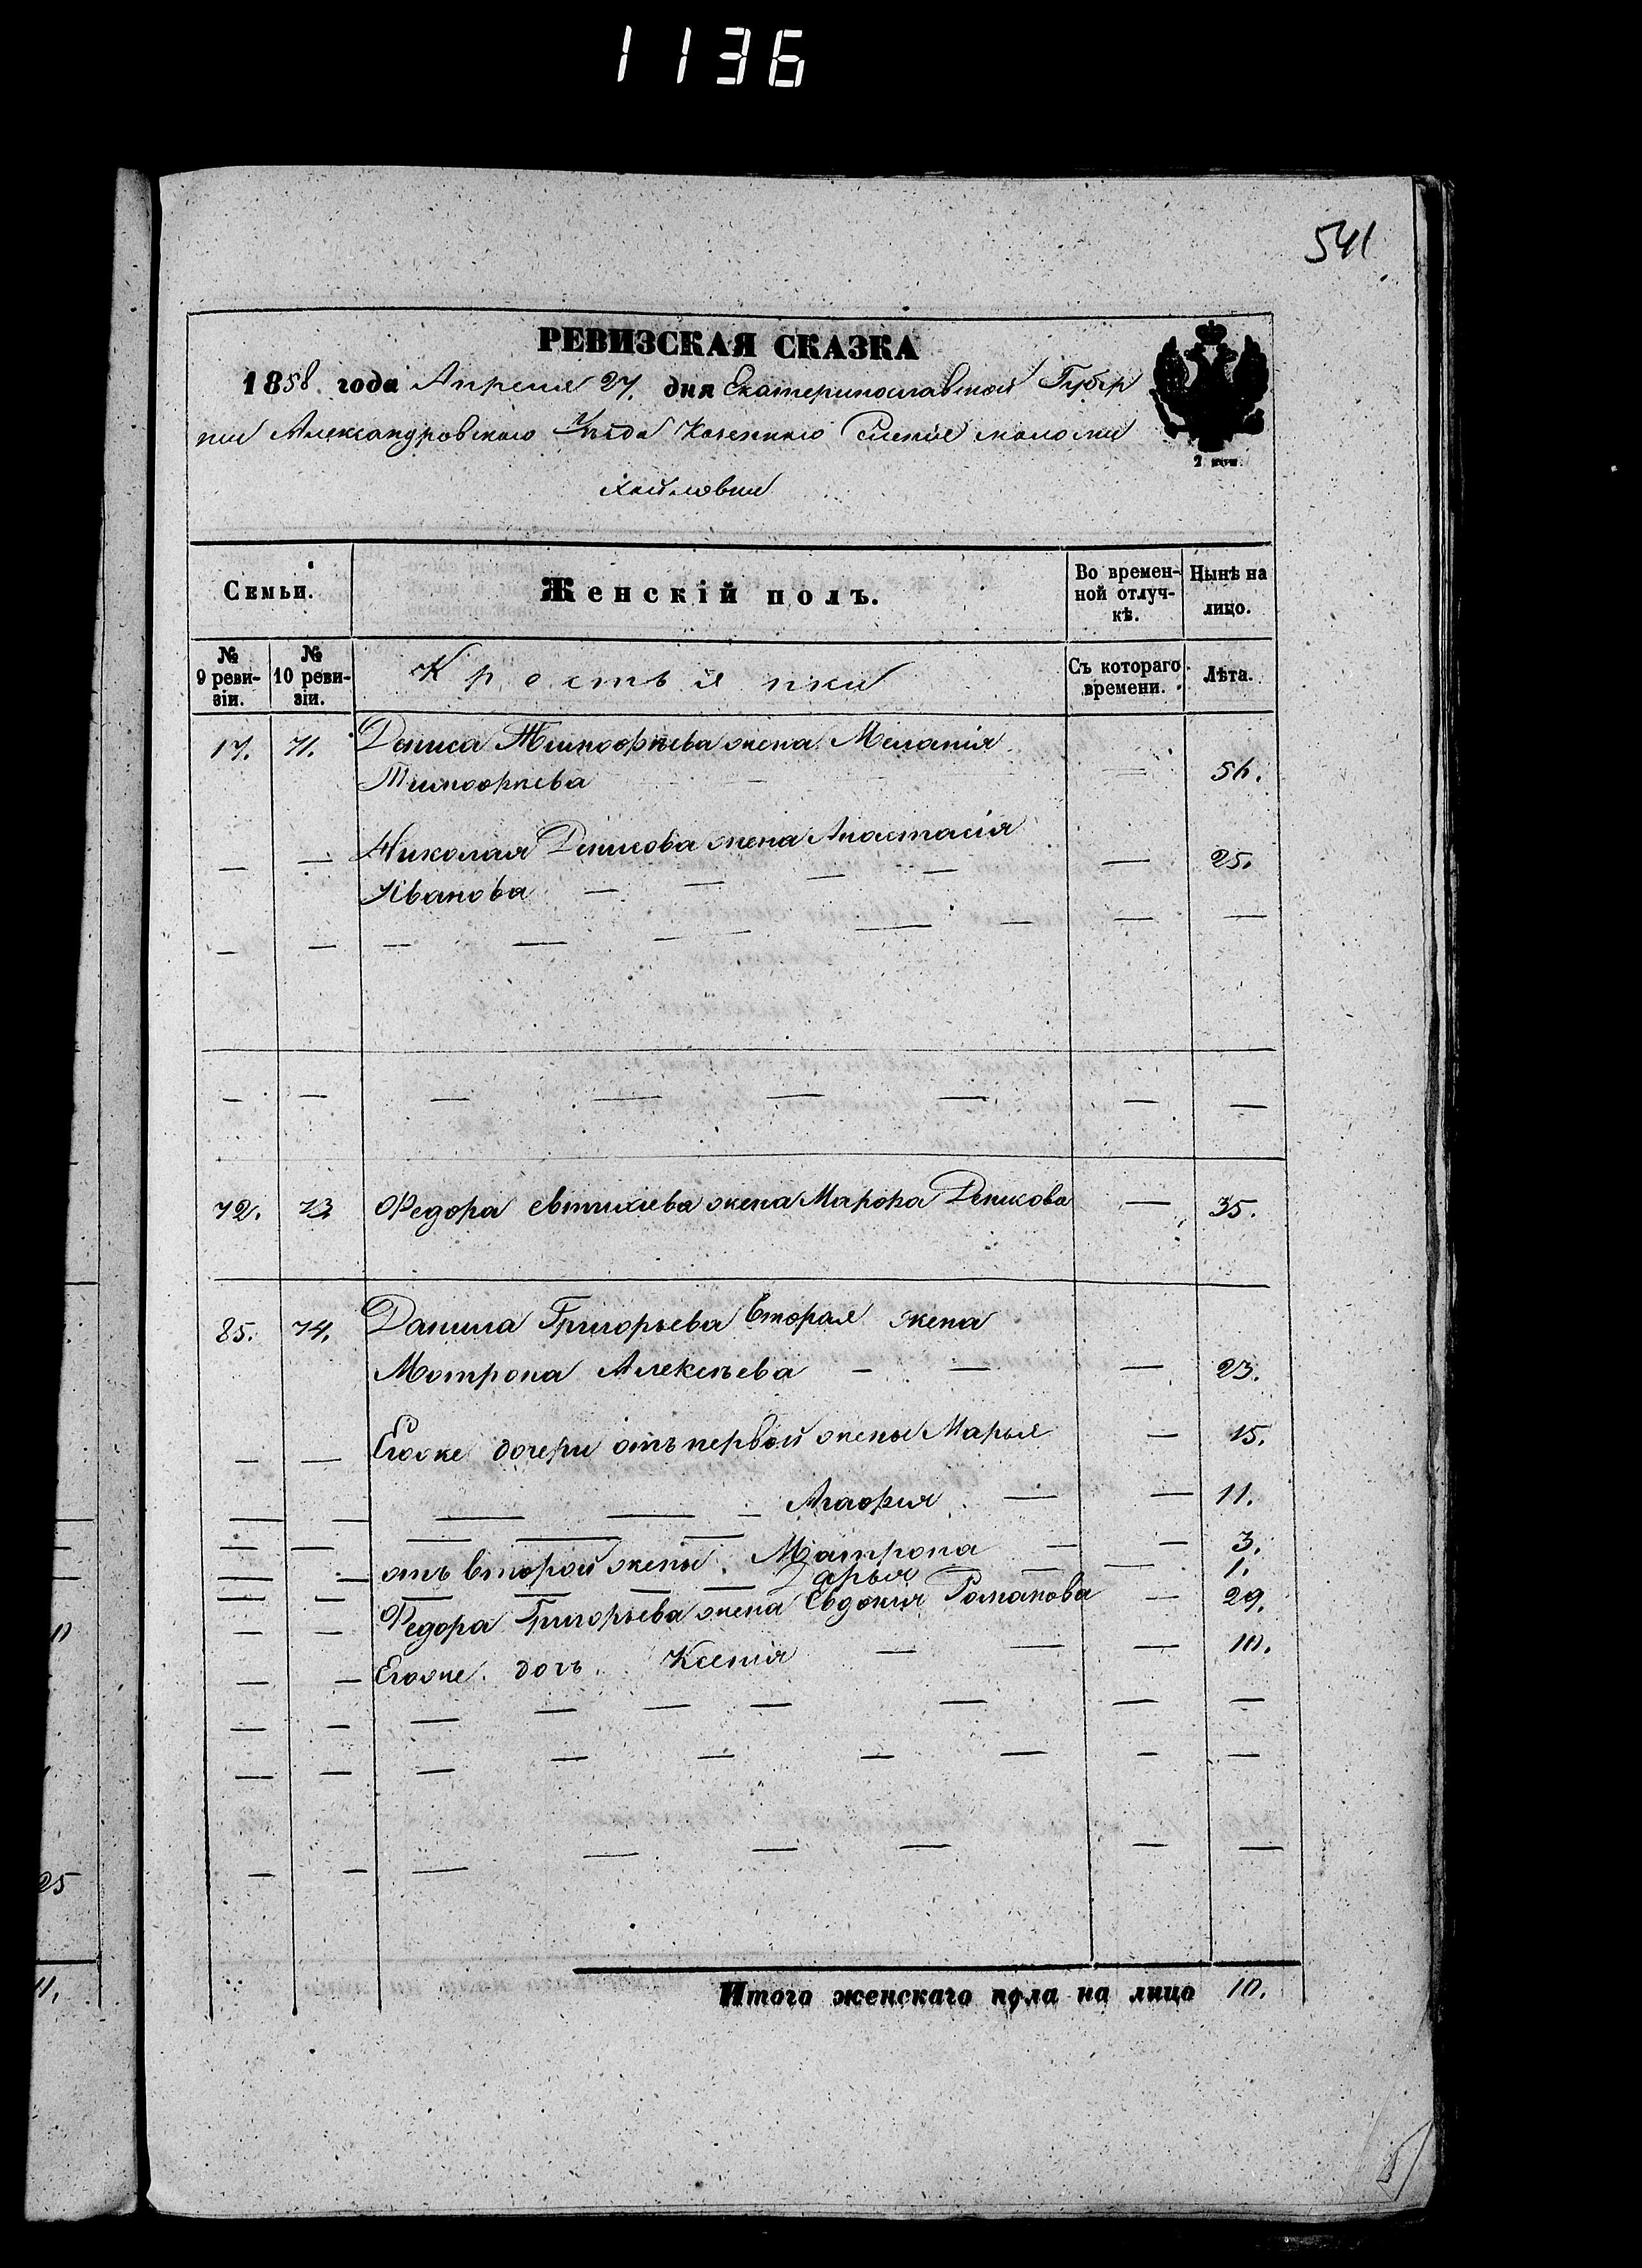 1136
541
РЕВИЗСКАЯ СКАЗКА
1858 года Апреля 27. дня Екатеринославской Губер
нии Александровского Уѣзда Казенного Селенія маломи
хайловки
2 коп.
Семьи. Женскій полъ. Во времен-ной отлуч-кѣ. Нынѣ на лицо.
№ 9 реви-зіи. № 10 реви-зіи. Крестьянки Съ котораго времени. Лѣта.
17. 71. Дениса Тимофѣева жена Меланія
Тимофѣева — — — — 56.
— — Николая Денисова жена Анастасія — 25.
Иванова — — — —
— — — — — — — — —
— — — — — — — —
72. 73 Федора евтихіева жена Марфа Денисова — 35.
85. 74. Данила Григорьева Вторая жена
Матрона Алексѣева — — — 23.
— — Егоже дочери отъ первой жены Марья — 15.
— — — — — Агафия — — 11.
— — — — — Матрона — — 3.
— — отъ второй жены. Дарья — — 1.
— — Федора Григорьева жена Евдокія Романова — 29.
— — Егоже дочь Ксенія — — — 10.
— — — — — — — — —
— — — — — — — — —
— — — — — — — —
Итого женскаго пола на лицо 10.
25
11.